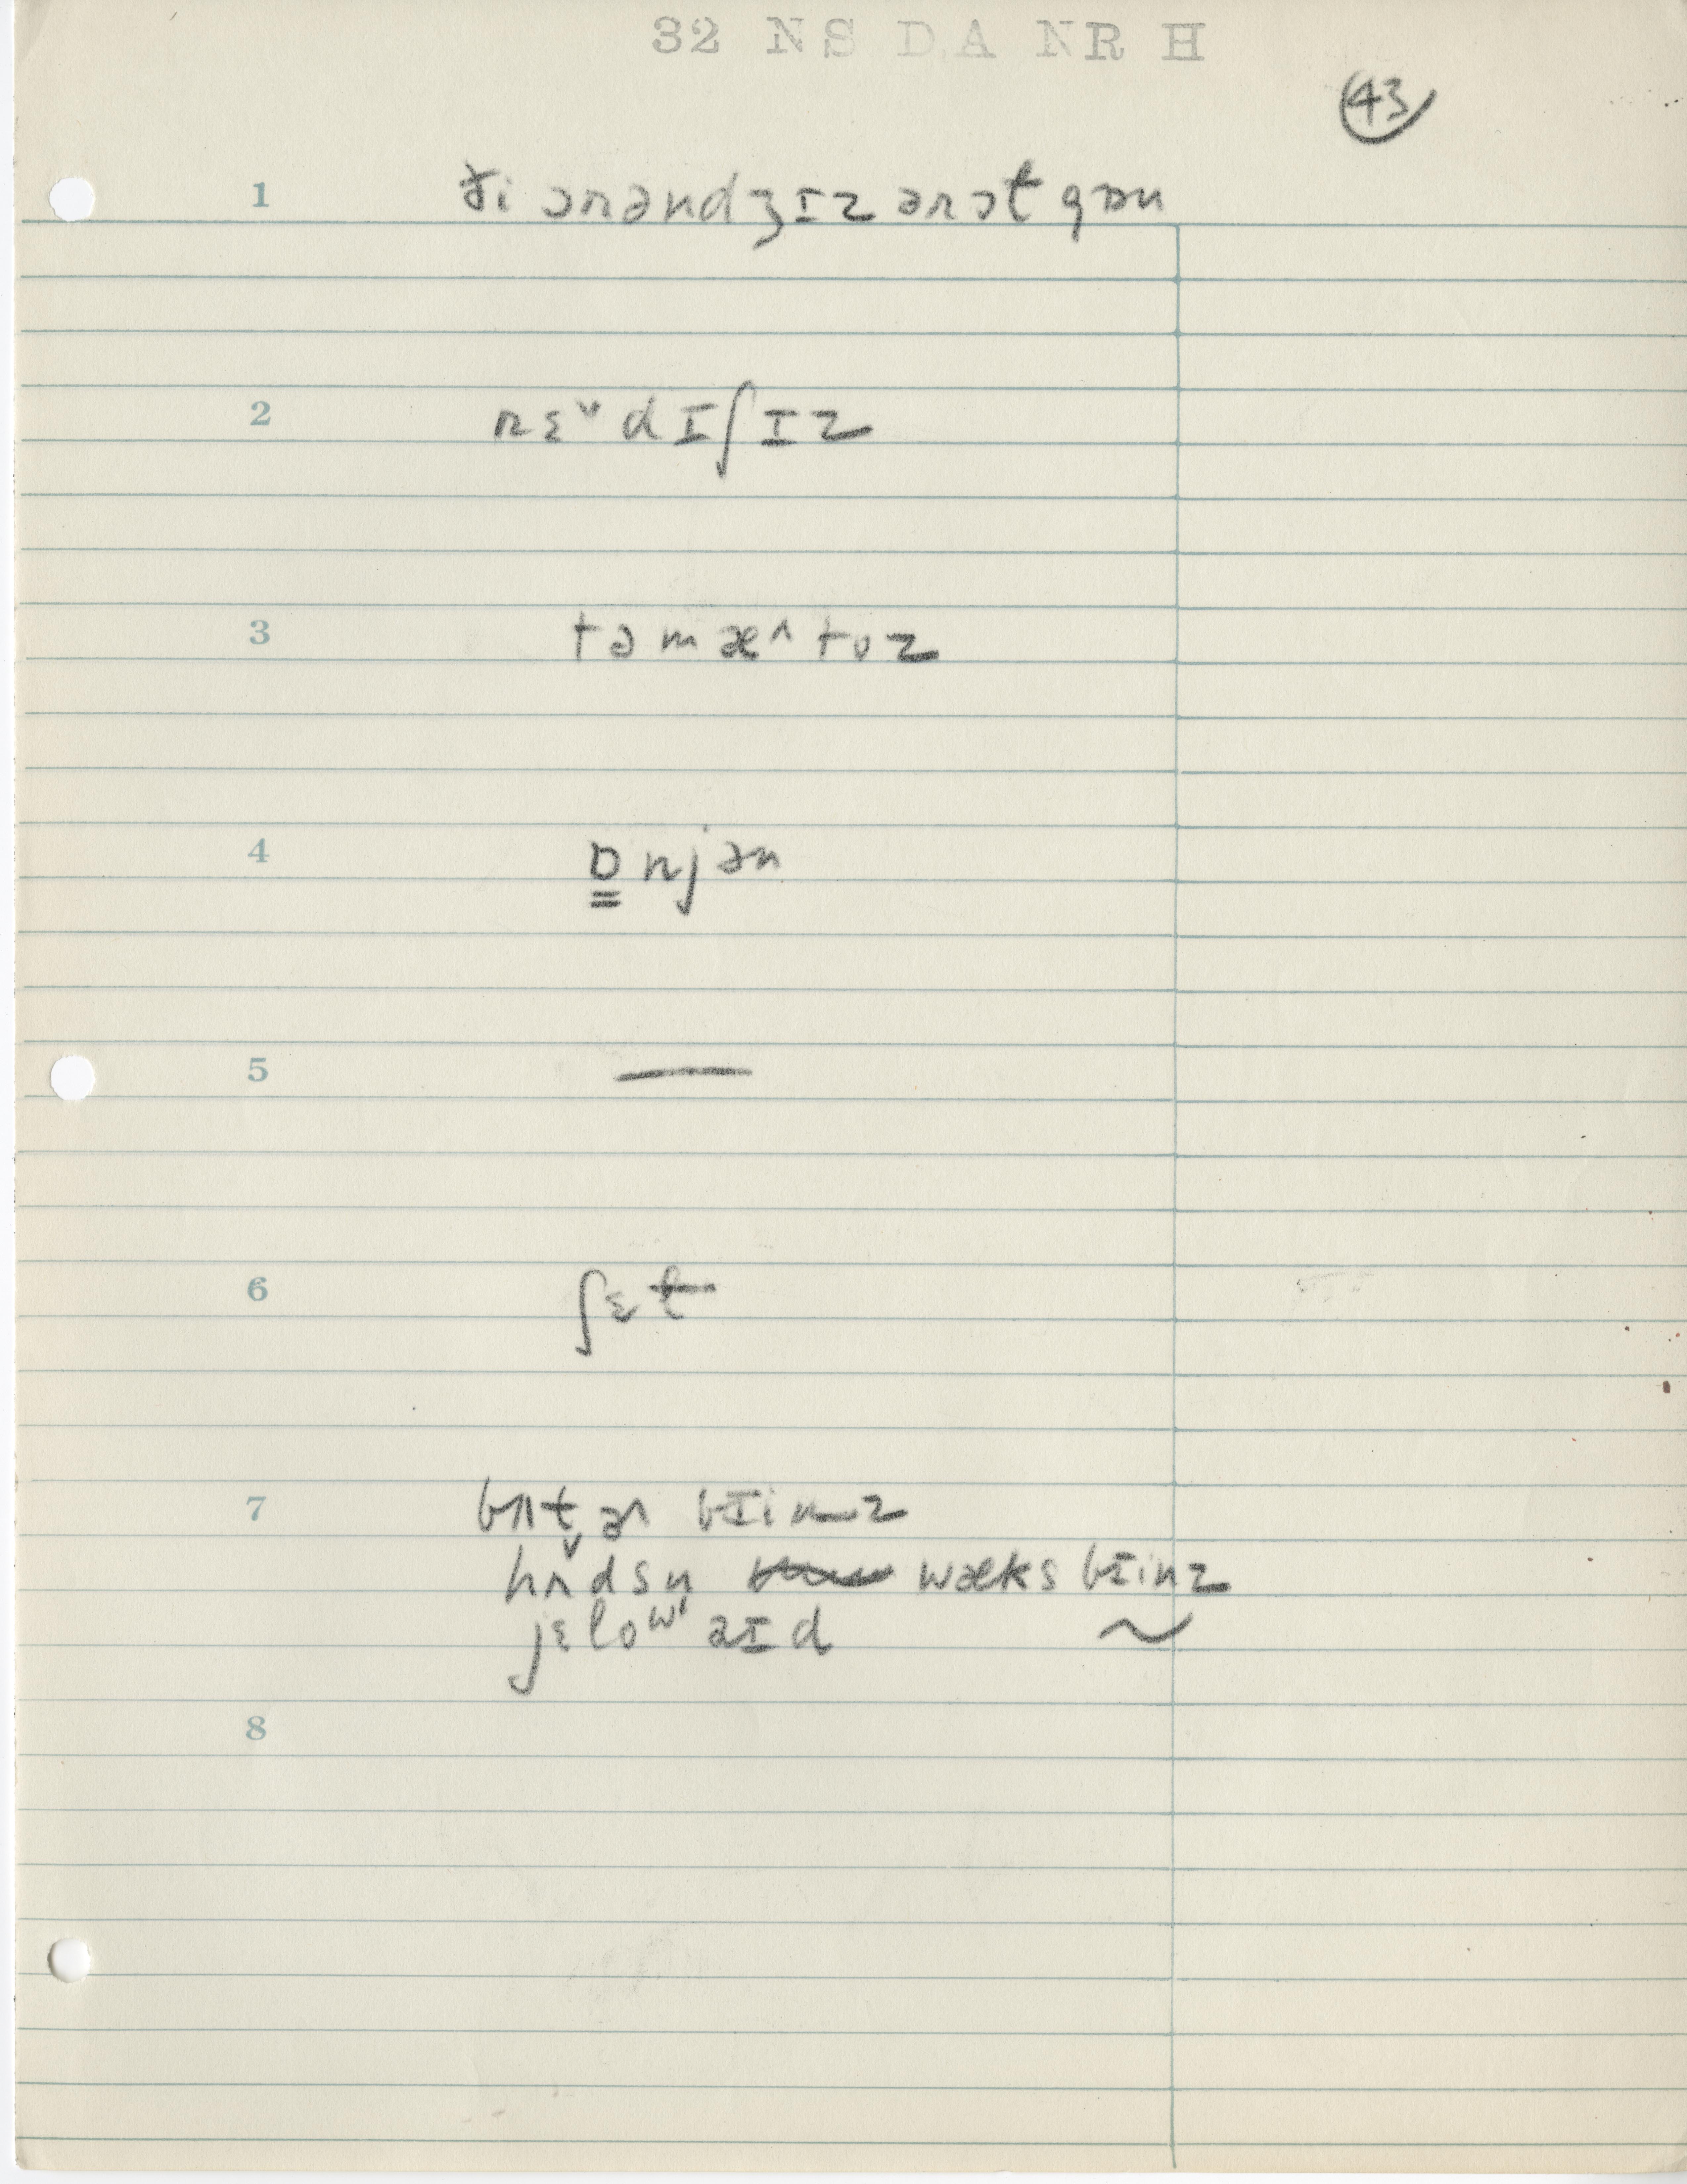 32 NS DA NR H
43
1 ði ɔrəndʒɪz ərɔt gɒn
2 rɛ˅dɪʃɪz
3 təmæ^toz
4 ɒ̳njən
5 —
6 ʃɛt
7 bʌt̬ər bɪinz
hʌdsn̩ wæks bɪinz
jɛlow aɪd ~
8